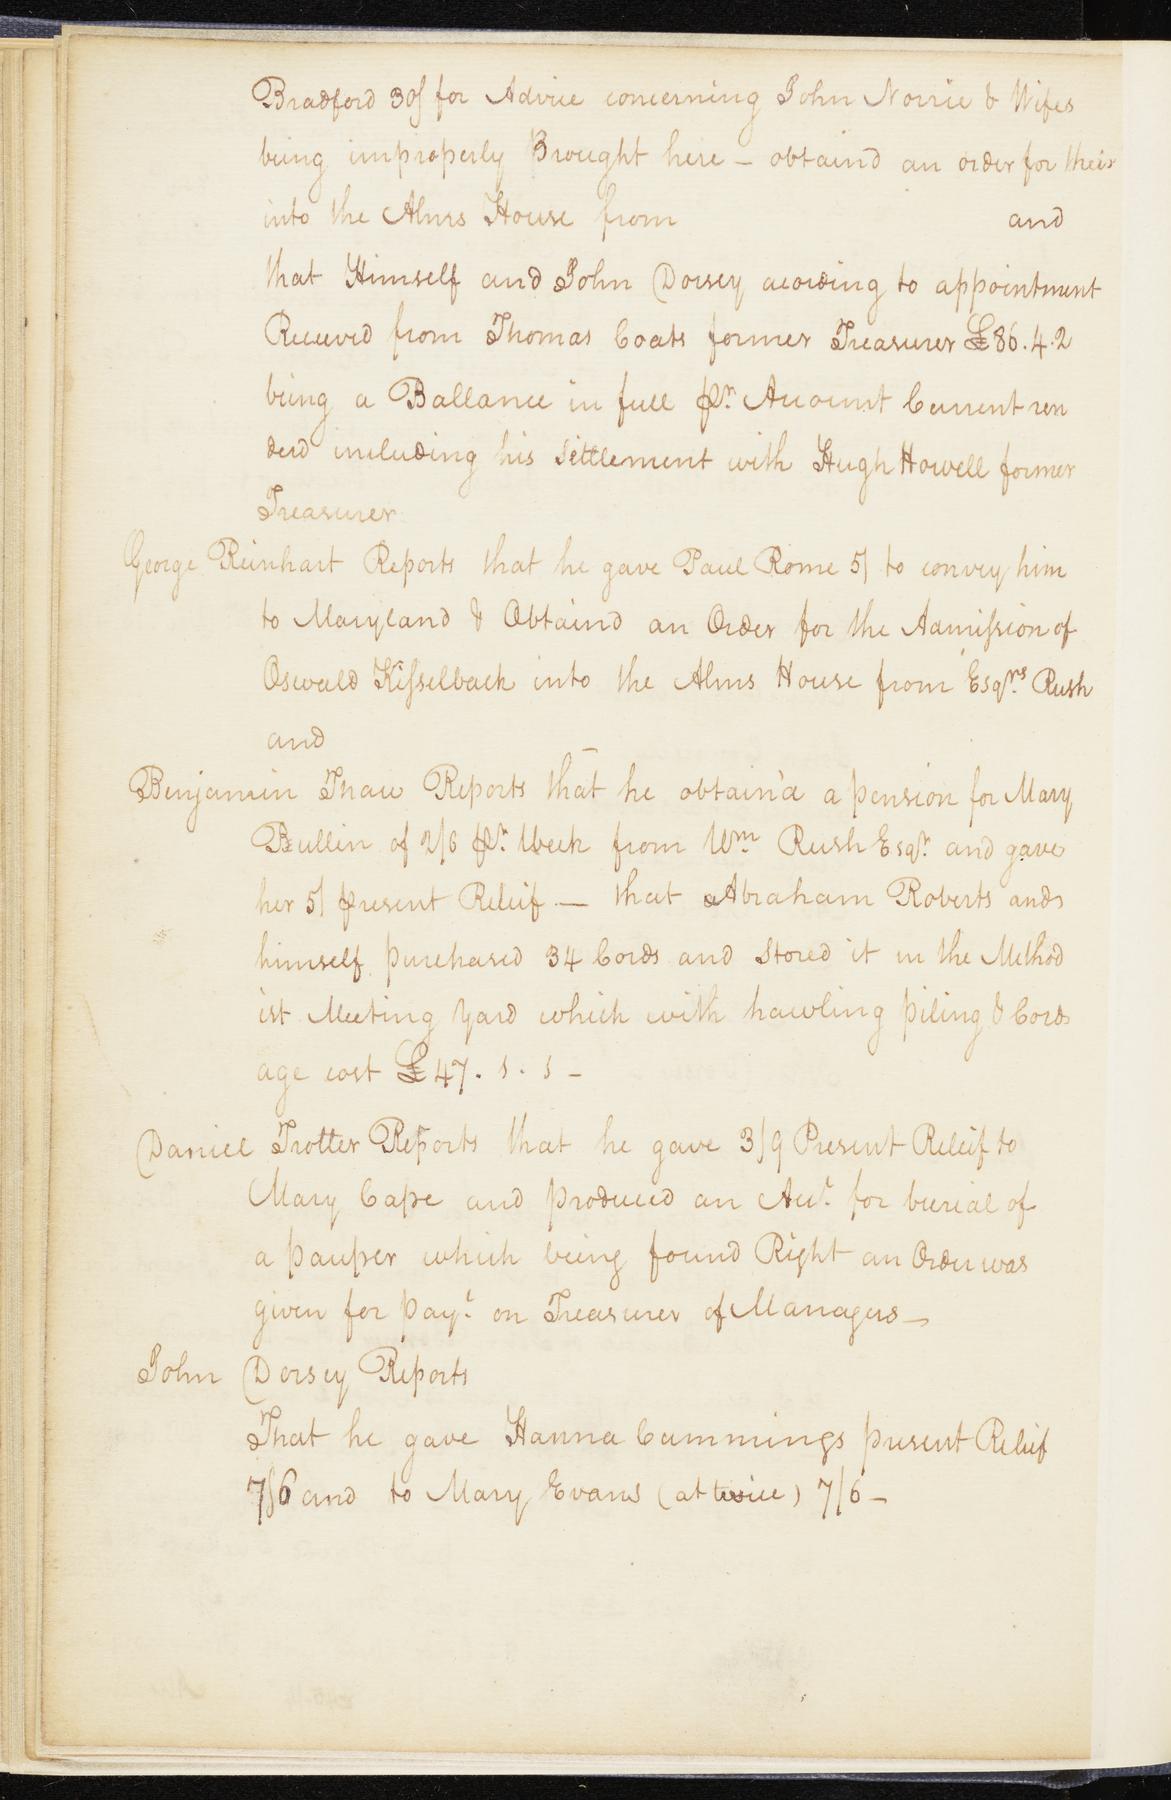 Bradford 30/ for Advice concerning John Norrie & Wifes
being improperly Brought here – obtaind an order for their
into the Alms House from and
that Himself and John Dorsey acording to appointment
Received from Thomas Coats former Treasurer £86.4.2
being a Ballance in full pr. Account Current ren
derd including his Settlement with Hugh Howell former
Treasurer
George Reinhart Reports that he gave Paul Rome 5/ to convey him
to Maryland & Obtaind an Order for the Admission of
Oswald Kisselback into the Alms House from Esqrs. Rush
and
Benjamin Thaw Reports that he obtain'd a pension for Mary
Bullin of 2/6 pr. Week from Wm. Rush Esqr. and gave
her 5/ present Relief – that Abraham Roberts and
himself purchased 34 Cords and Stored it in the Method
ist Meeting Yard which with hawling piling & Cord
age cost £47. 5. 5 –
Daniel Trotter Reports that he gave 3/9 Present Releif to
Mary Cape and produced an Acct. for burial of
a pauper which being found Right an Order was
given for payt. on Treasurer of Managers –
John Dorsey Reports
That he gave Hanna Cummings present Relief
7/6 and to Mary Evans (at twice) 7/6 –